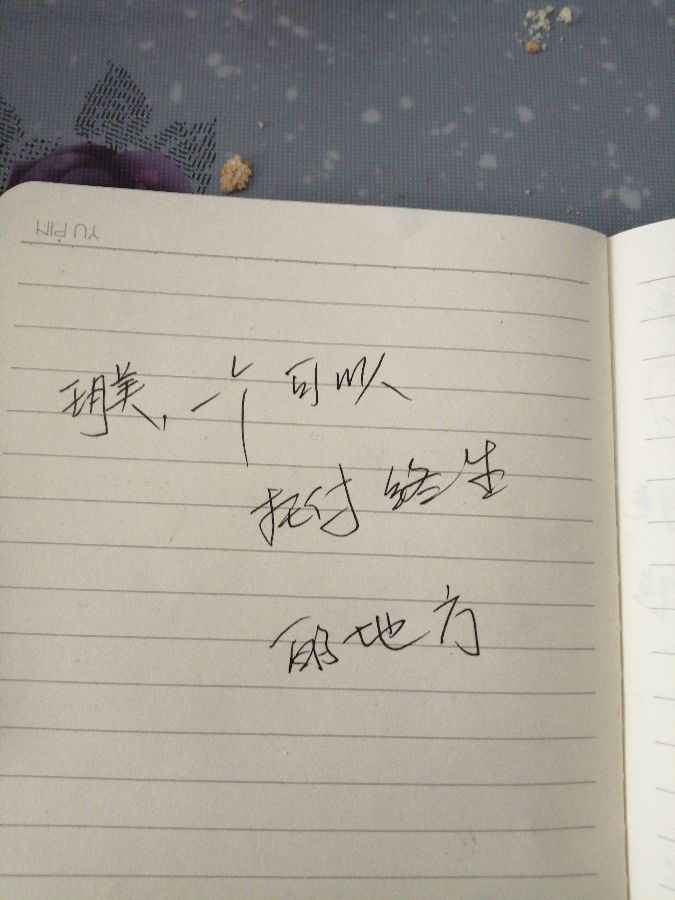 YU PIN
玥美，一个可以
托付终生
的地方